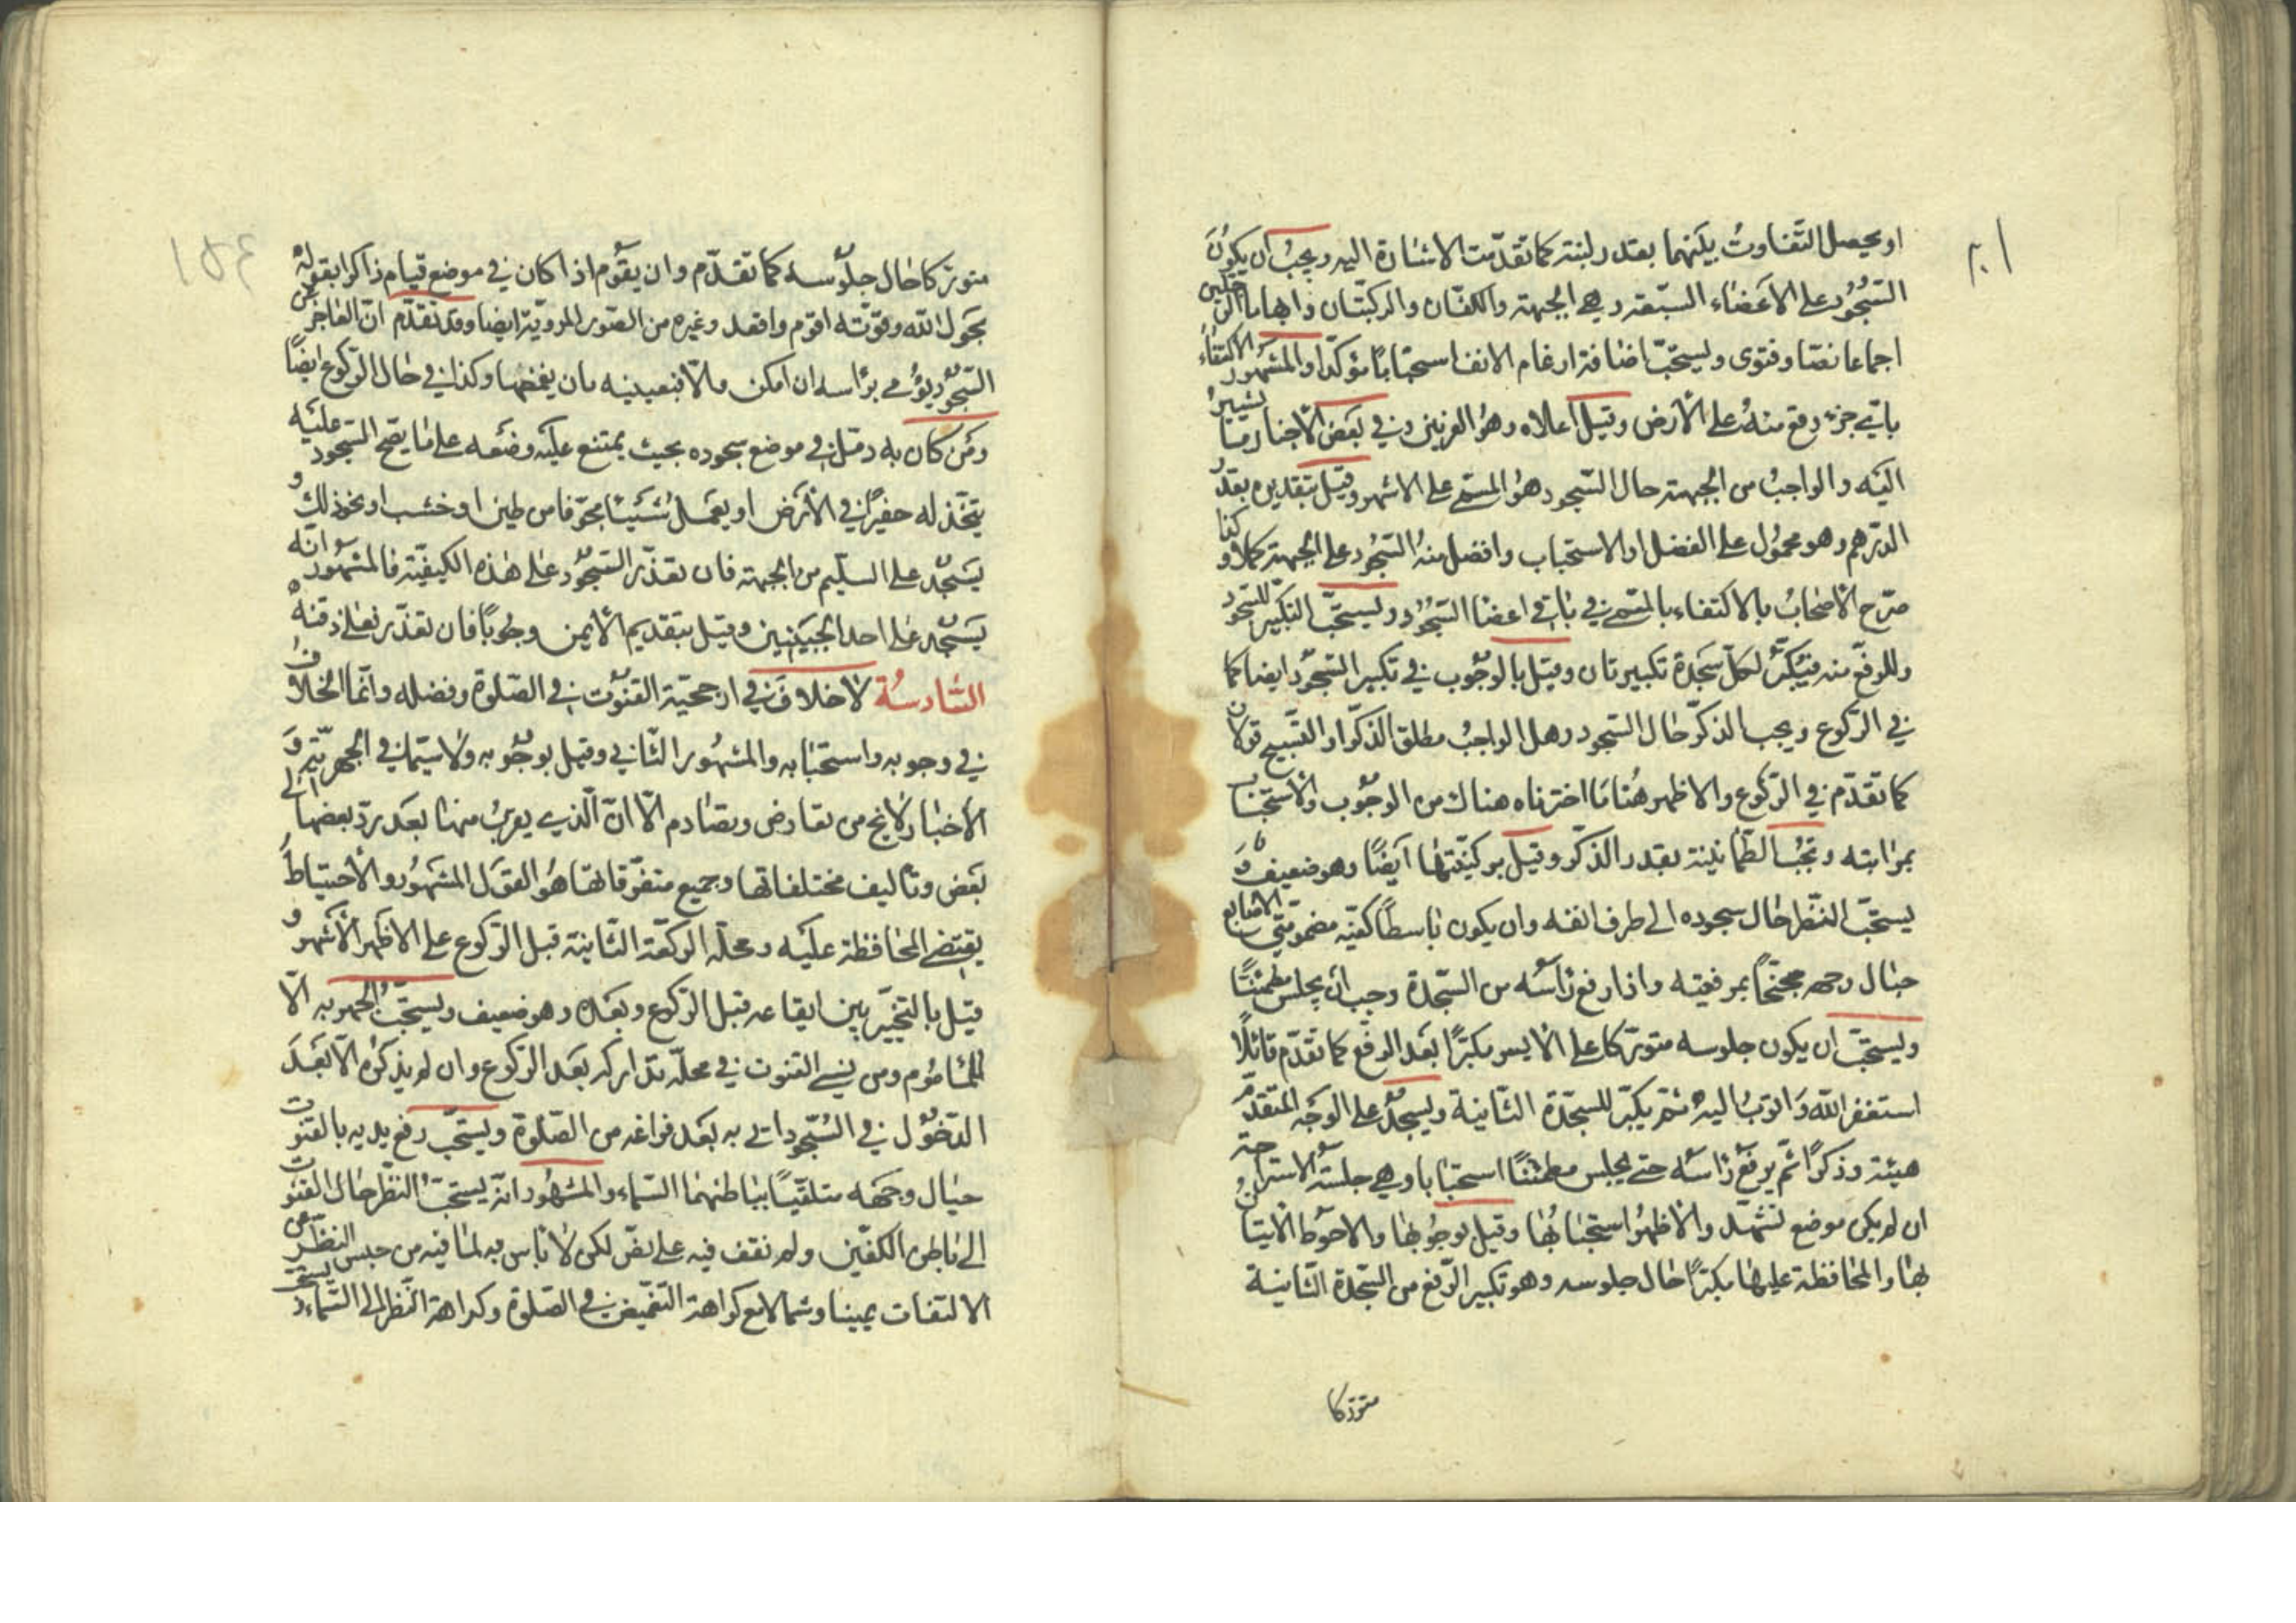 او يحصل التّفاوتُ بينهما بقدر لبنة كما تقدّمت الاشارة اليه ويجبُ ان يكون
السّجُود على الأعضاء السّبعة وهي الجبهة والكفّان والركبتان وابهاما الرجلين
اجماعا نصّا وفتوى ويستحبّ اضافة ارغام الانف استحبابًا مؤكّدا والمشهُور الاكتفاءُ
باي جزء وقع منهُ على الأرض وقيل اعلاه وهُو العرنين وفي بعض الأخبار ما يشيرُ
اليه والواجبُ من الجبهة حال السّجود هُو المسمّى على الاشهر وقيل بتقديره بقدر
الدّرهم وهو محمُول على الفضل او الاستحباب وافضل منهُ السّجُود على الجبهة كملا و كذا
صرّح الأصحابُ بالاكتفاء بالمسمّى في باقي اعضا السّجُود ويستحبّ التكبير للسّجود
وللرفع منه فيُكبّر لكلّ سجدة تكبيرتان وقيل بالوجُوب في تكبير السّجُود ايضا كما
في الرّكوع ويجب الذكر حال السّجود وهل الواجبُ مطلق الذكر او التّسبيح قولان
كما تقدّم في الرّكوع والاظهر هُنا ما اخترناه هناك من الوجُوب والأستحباب
بمراتبه وتجبُ الطّمأنينة بقدر الذكر وقيل بركنيّتها أيضًا وهو ضعيف وَ
يستحبّ النّظر حال سجوده الى طرف انفه وان يكون باسطًا كفّيه مضمومتي الاصابع
حيال وجهه مجنّحًا بمرفقيه واذا رفع رأسُه من السّجدة وجب ان يجلس مطمئنًّا
ويستحبّ ان يكون جلوسه متورّكا على الأيسر مكبّرًا بعد الرفع كما تقدّم قائلًا
استغفر الله وَاتوبُ اليهِ ثمّ يكبّر للسّجدة الثّانية ويسجدُ على الوجه المتقدّم
هيئة وذكرًا ثم يرفع رأسَه حتى يجلس مطمئنًا استحبابا وهي جلسة الاستراحة
ان لم يكن موضع تشهّد والأظهرُ استحبابُها وقيل بوجُوبها والاحوط الأتيانُ
بها والمحافظة عليها مكبّرًا حال جلوسه وهو تكبير الرّفع من السّجدة الثّانية
متورّكا
متورّكا حال جلُوسه كما تقدّم وان يقُوم اذا كان في موضع قيام ذاكرا بقولهِ
بحَول الله وقوّته اقوم واقعد وغيره من الصّور المرويّة ايضا وقد تقدّم انّ العاجز عن
السّجُود يؤُمي برأسه ان امكن والّا فبعينيه بان يغمضها وكذا في حال الرّكوع ايضًا
ومَن كان به دمّل في موضع سجوده بحيث يمتنع عليه وضعه على ما يصح السّجود عليه
يتخّذ له حفيرًا في الأرض او يعمل شيئا مجوّفا من طين او خشب او نحو ذلك و
يسجُد على السّليم من الجبهة فان تعذّر السّجُود على هذه الكيفيّة فالمشهُور انّه
يسجُد على احد الجبينين وقيل بتقديم الأيمن وجُوبًا فان تعذّر فعلى ذقنه
السّادسة لا خلاف في ارجحيّة القنوت في الصّلوة وفضله وانّما الخلاف
في وجوبه واستحبابه والمشهُور الثّاني وقيل بوجُوبه ولا سيّما في الجهريّة وَ
الأخبار لا تخ من تعارض وتصادم الّا انّ الّذي يعربُ منها بعد ردّ بعضها الى
بعض وتأليف مختلفاتها وجميع متفرّقاتها هُو القول المشهُور والأحتياطُ
يقتضي المحافظة عليه ومحلّه الركعة الثّانية قبل الرّكوع على الاظهر الأشهر و
قيل بالتخيّير بين ايقاعه قبل الرّكوع وبعده وهو ضعيف ويستحبّ الجهر به الّا
للمأمُوم ومن نسي القنوت في محلّه تداركه بعد الرّكوع وان لم يذكرُه الّا بعد
الدّخُول في السّجُود اتى به بعد فراغه من الصّلوة ويستحبّ رفع يديه بالقنوت
حيال وجهه متلقّيًا بباطنهما السّماء والمشهُور انّه يستحبّ النّظر حال القنوت
الى باطن الكفّين ولم نقف فيه على نصّ لكن لا بأس به لما فيه من حبس النّظر عن
الالتفات يمينا وشمالا مع كراهة التغميض في الصّلوة وكراهة النّظر الى السّماء و يستحبّ